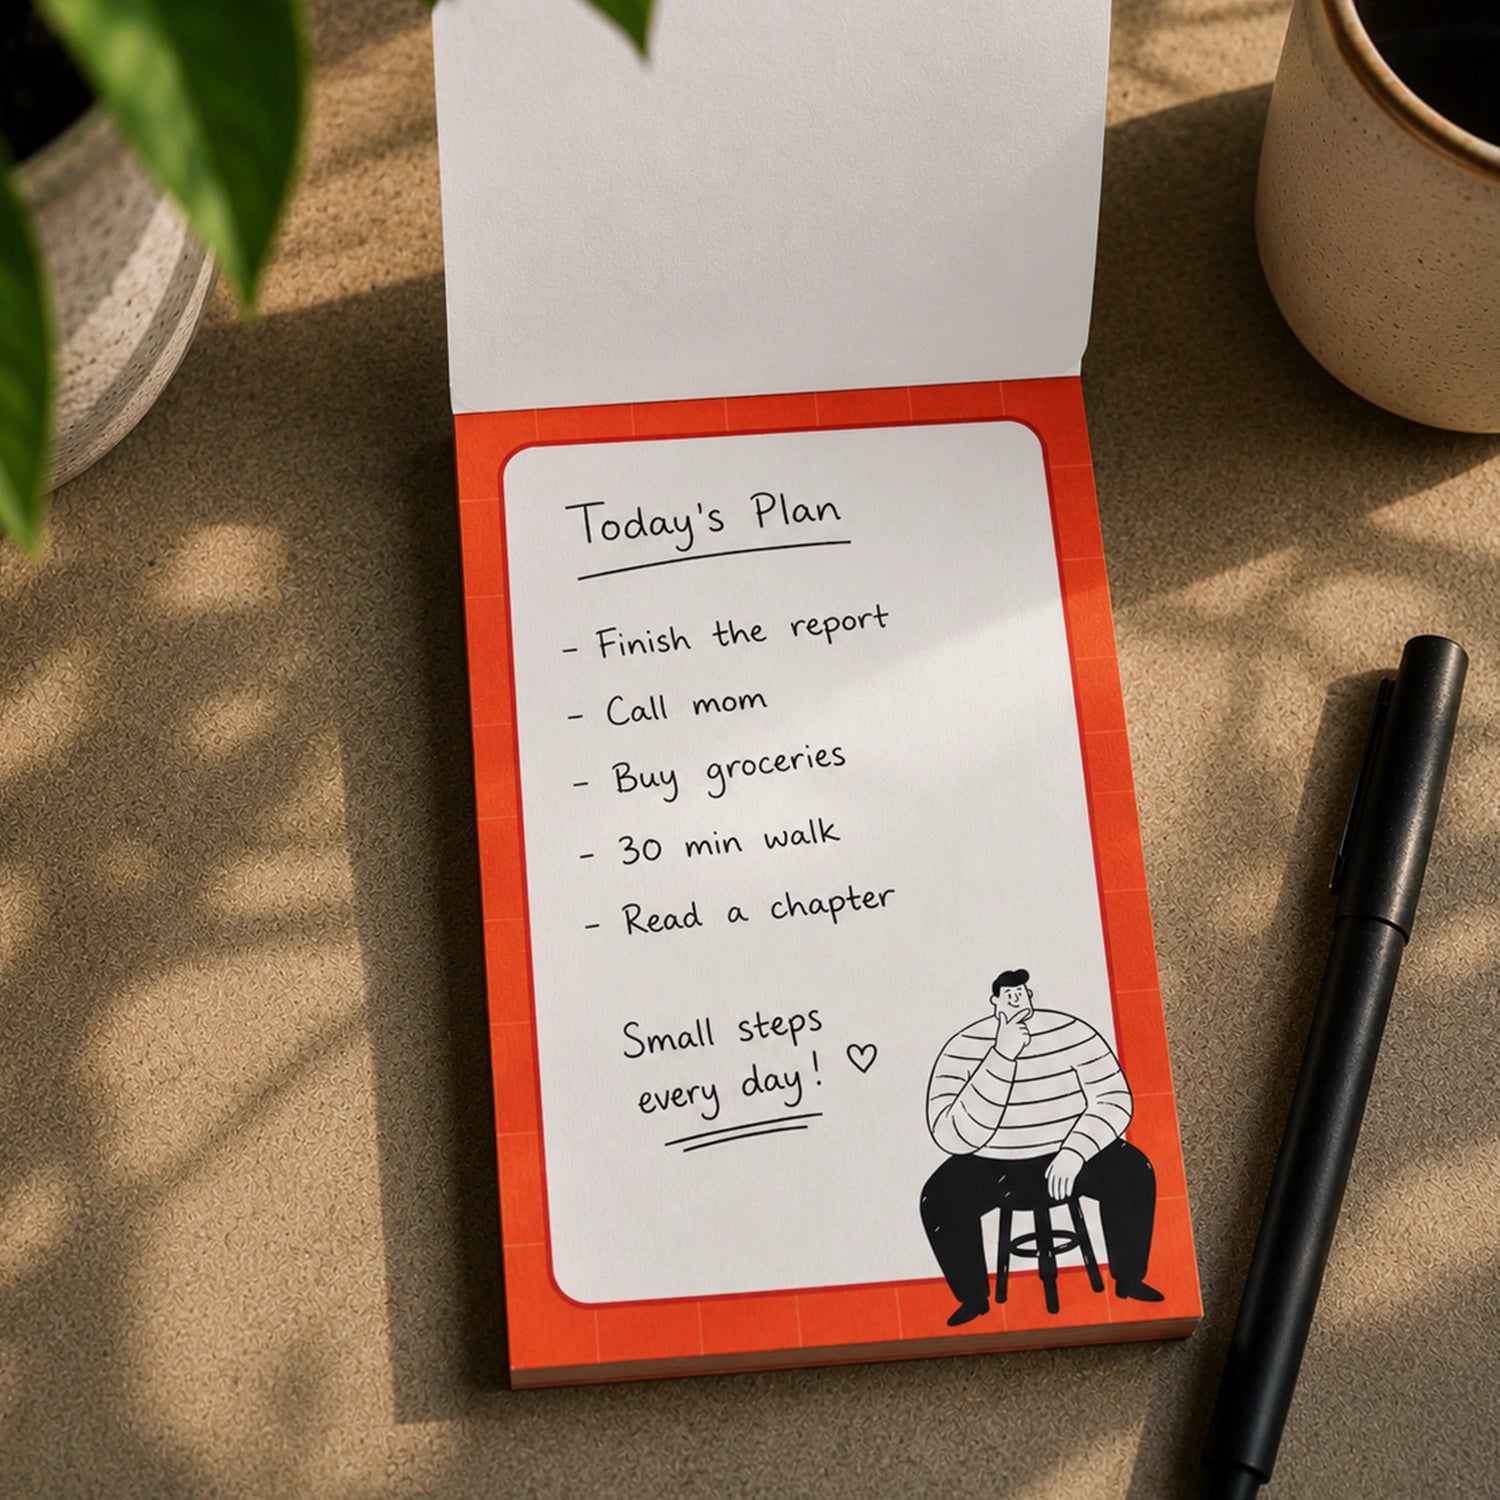 Today's Plan
- Finish the report
- Call mom
- Buy groceries
- 30 min walk
- Read a chapter
Small steps
every day! ♡